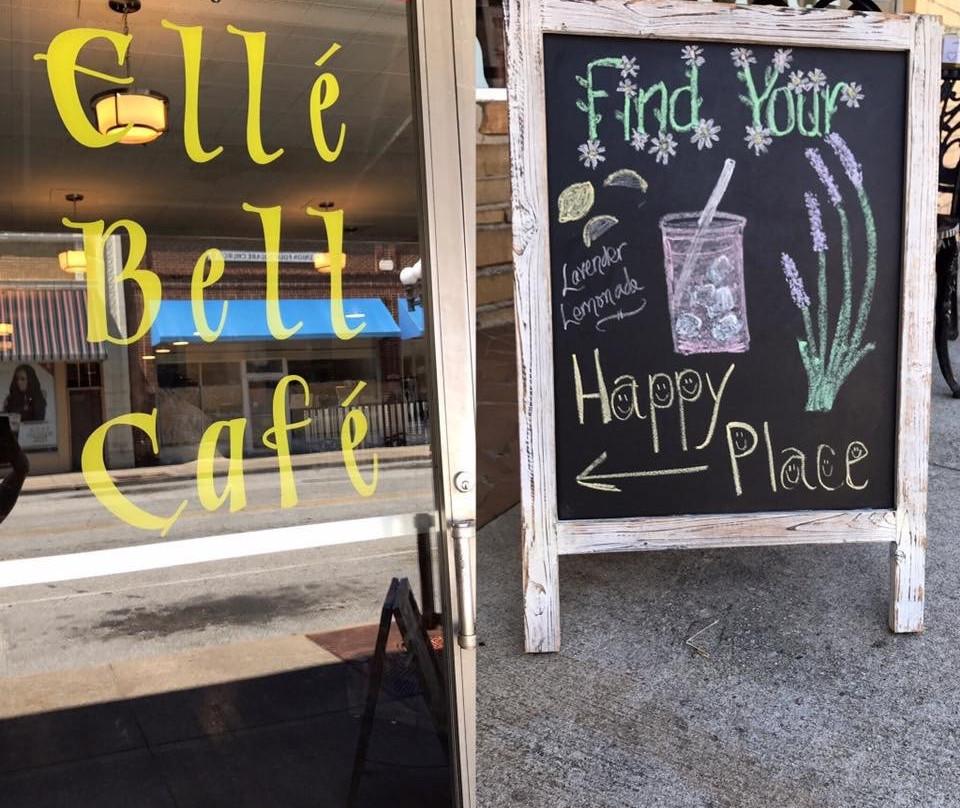 Ellé
Bell
Café
Find Your
Lavender
Lemonade
Happy
Place